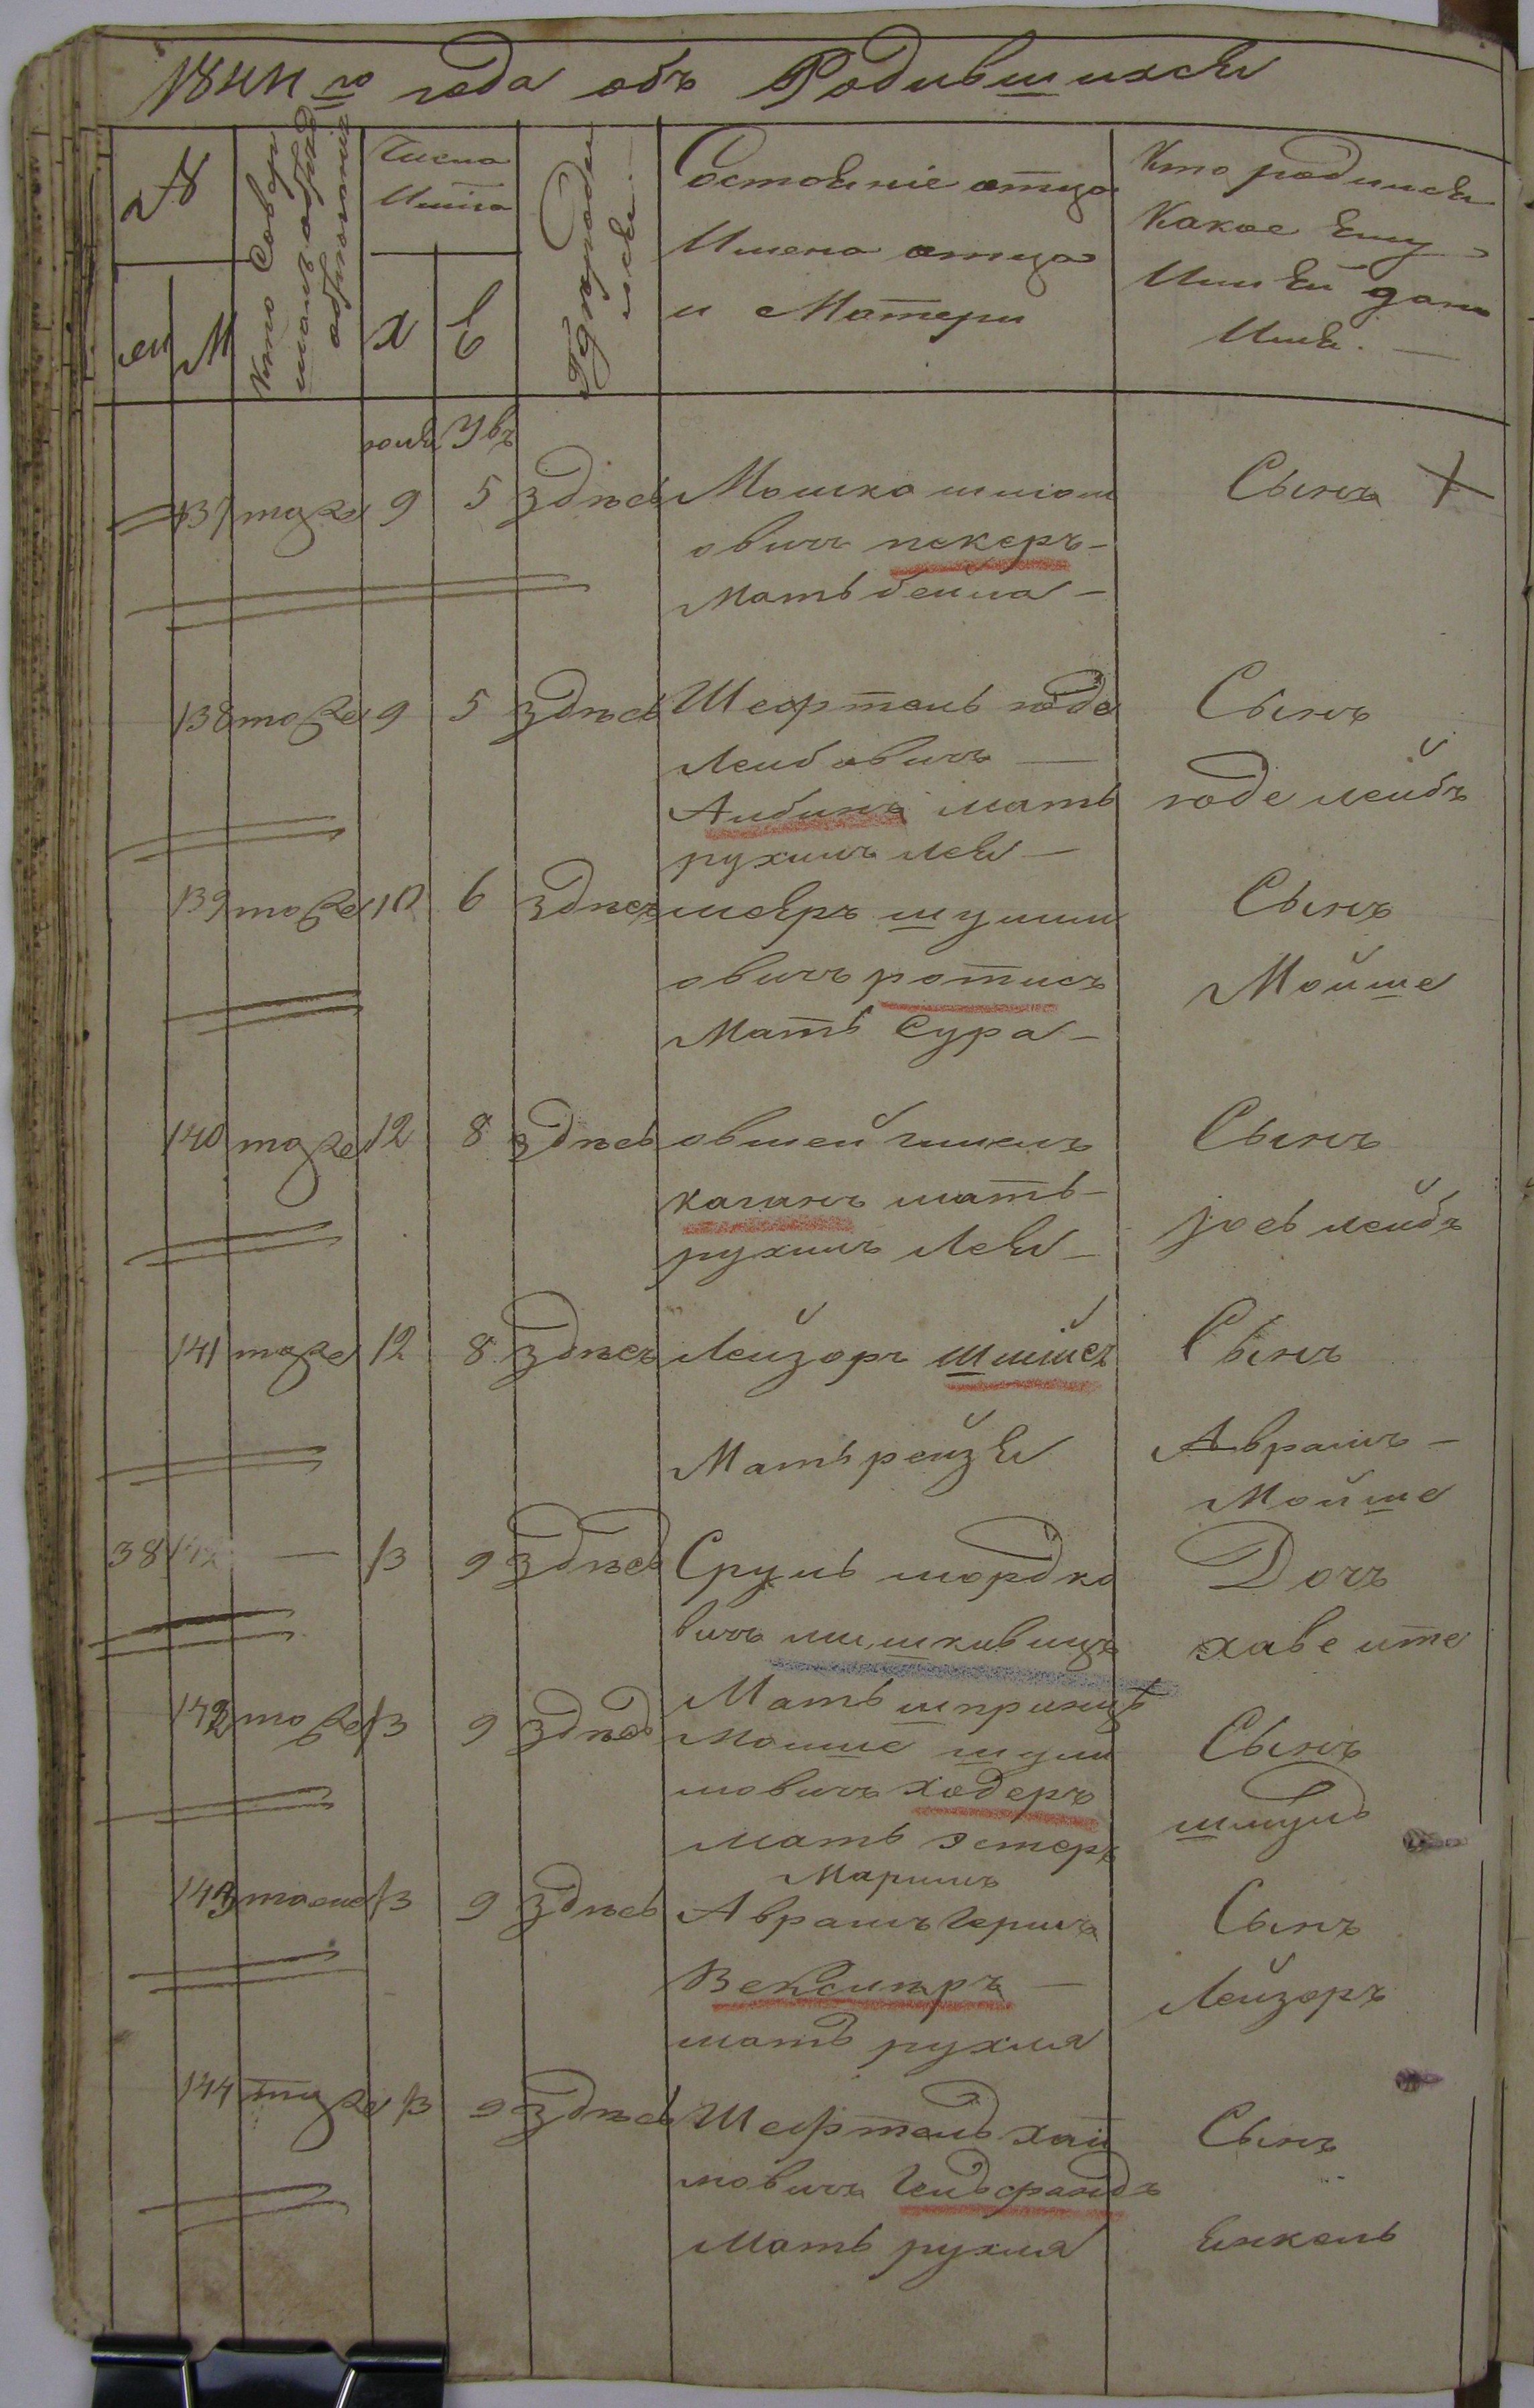 1844 го года объ Родившихся
№
Кто Совер
шалъ обряд
обрезанія
Числа
Где родил
ся
Состояніе отца
Имена отца
и Матери
Кто родился
Какое Ему
Или Ей дано
Имя.
М
Х
Е
137 тоже 9 5 здесь Мошко шлiом
овичъ пекеръ
Мать бейла
Сынъ
138 тоже 9 5 здесь Шефтель
Лейбовичъ
мать
рухля лея
Сынъ
лейбъ
139 тоже 10 6 здесь меяръ шулим
овичъ ротисъ
Мать Сура
Сынъ
Мойше
140 тоже 12 8 здесь овшей
каганъ мать
рухля Лея
Сынъ
лейбъ
141 тоже 12 8 здесь Лейзоръ
Мать рейзя
Сынъ
Аврамъ
Мойше
38 13 9 здесь Сруль мордко
вичъ
Мать шпринцъ
Дочъ
хаве ите
142 тоже 13 9 здесь Моише шули
мовичъ ходеръ
мать эстеръ
Маримъ
Сынъ
шмуль
143 тоже 13 9 здесь Аврамъ Гершъ
Векслиръ
мать рухля
Сынъ
Лейзоръ
144 тоже 13 9 здесь Шефтель хай
мовичъ
Мать рухля
Сынъ
Янкель